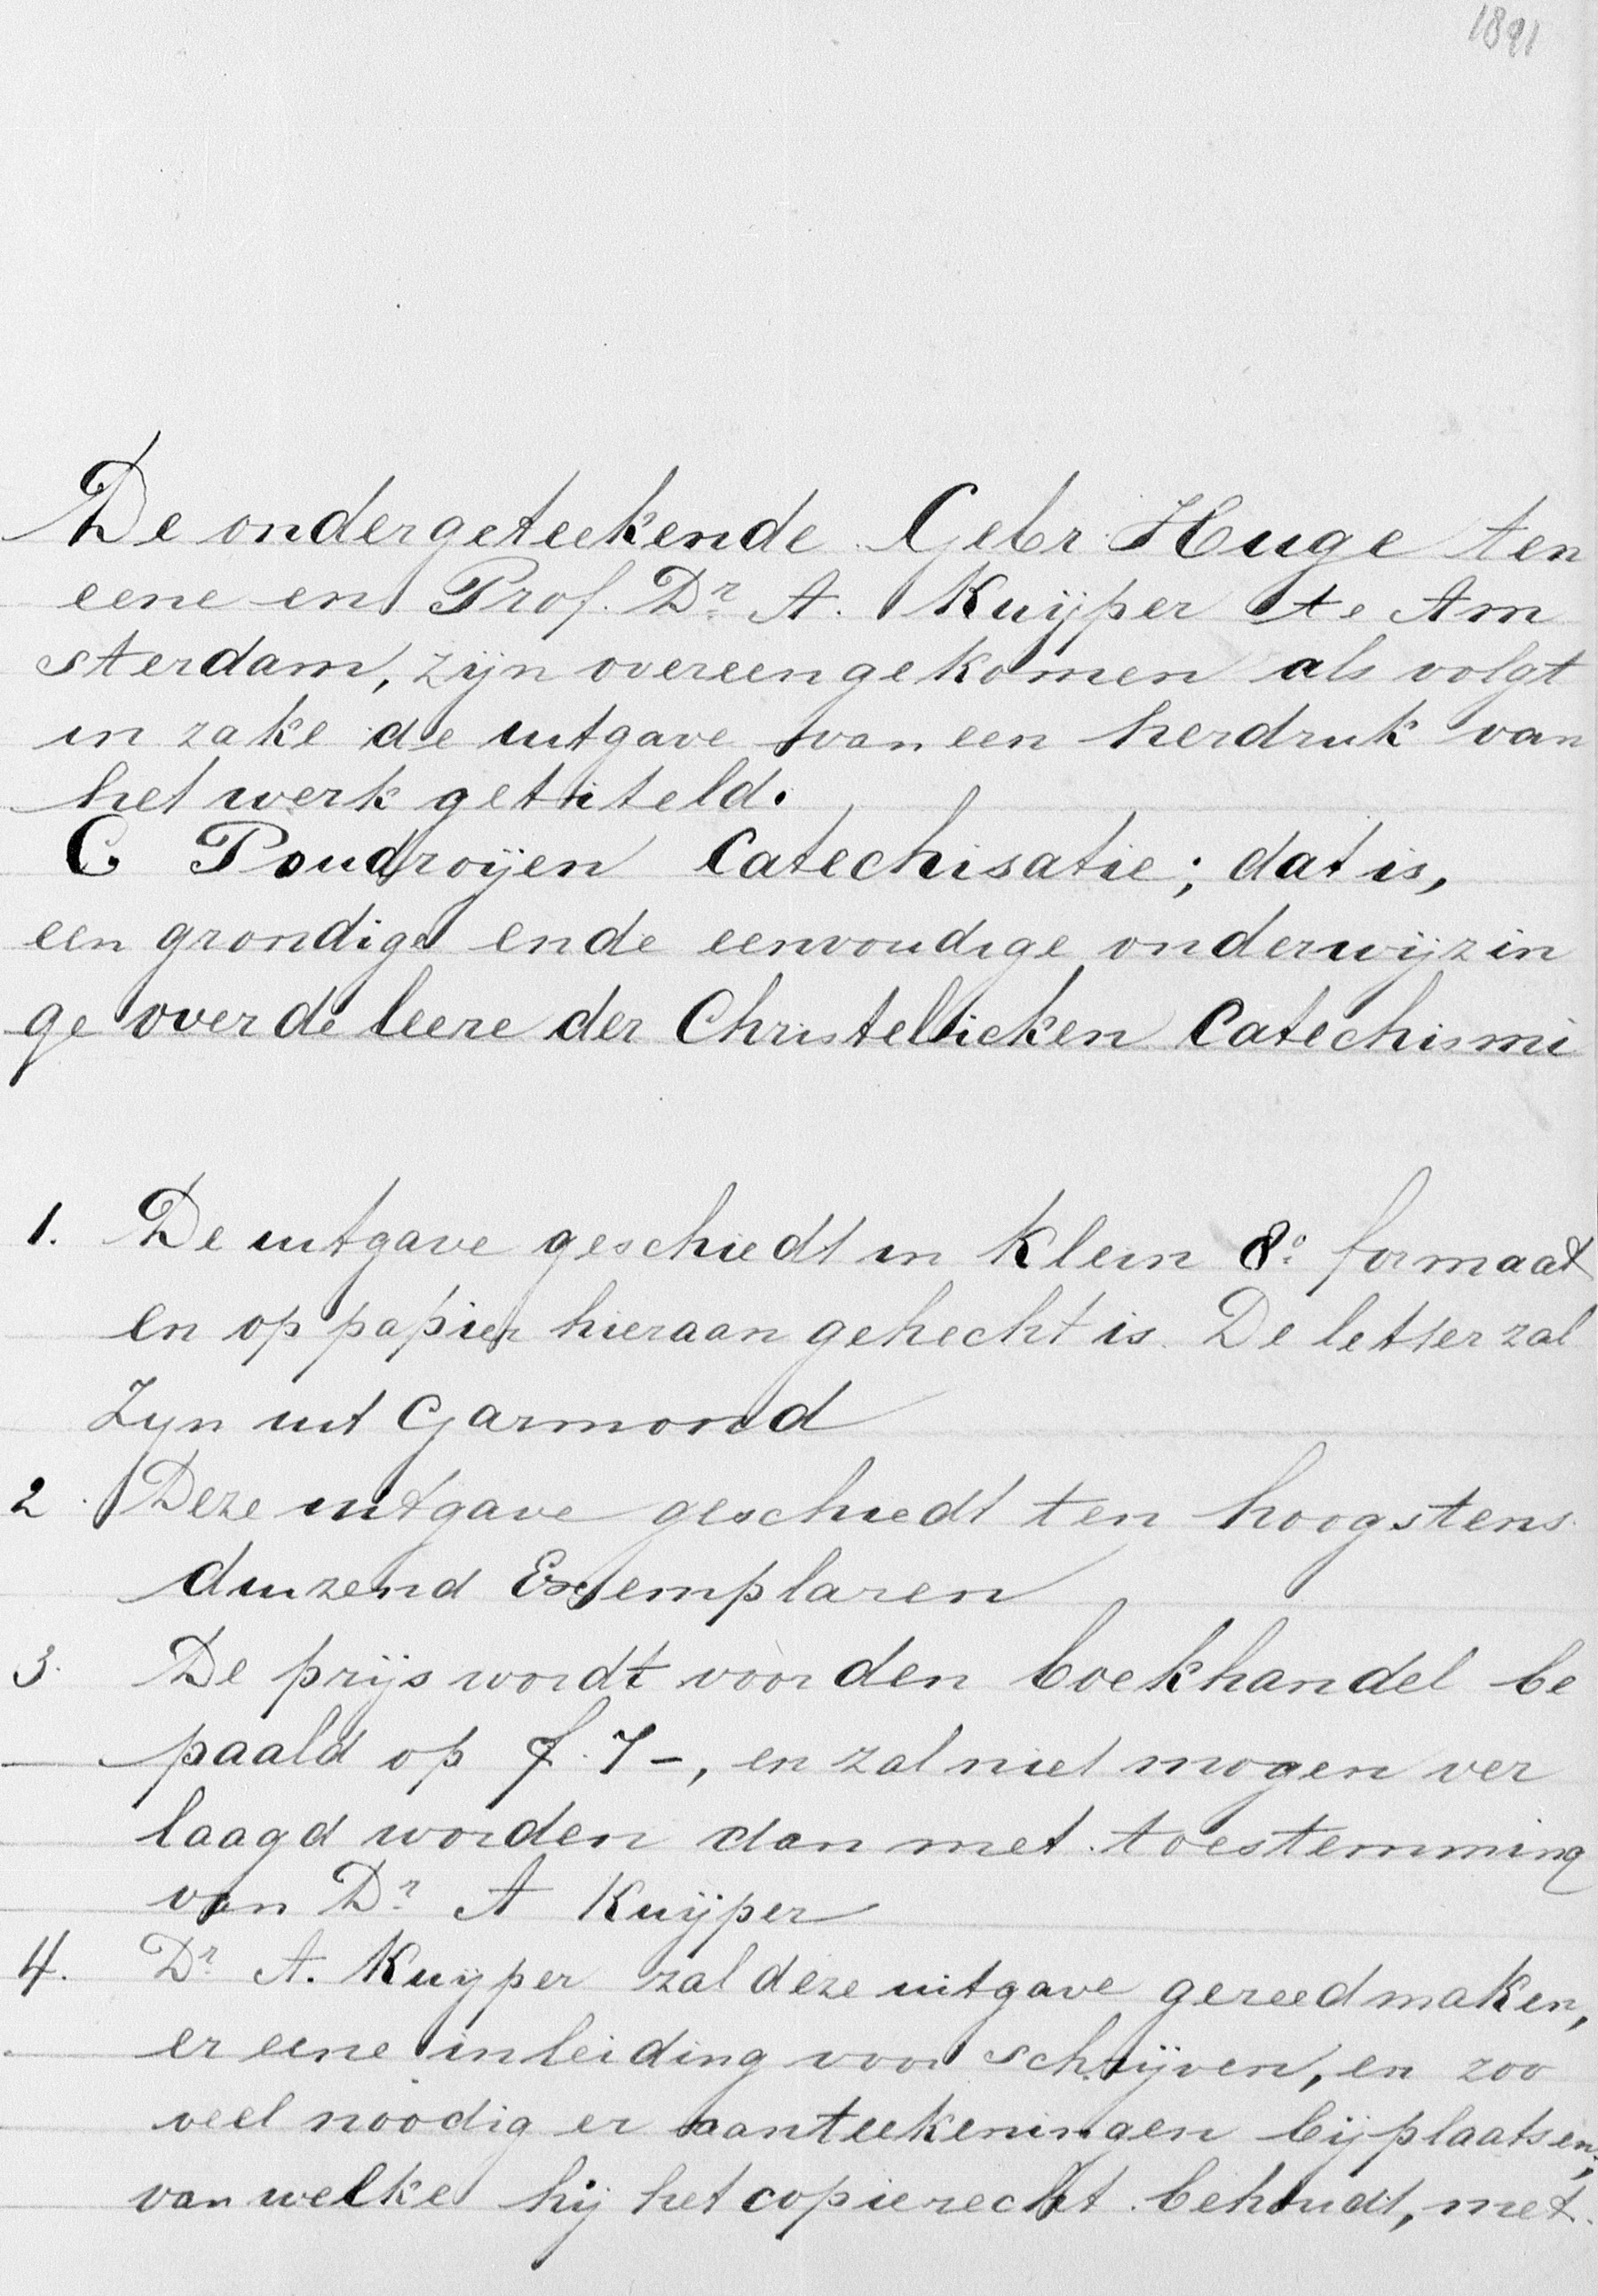 1891
De ondergeteekende Gebr Huge ten
eene en Prof. Dr. A. Kuijper te Am
sterdam, zijn overeengekomen als volgt
in zake de uitgave van een herdruk van
het werk getiteld.
C Poudroijen Catechisatie; dat is,
een grondige ende eenvoudige onderwijzin
ge over de leere der Christelicken Catechismi
1. De uitgave geschiedt in klein 8o. formaat
en op papier hieraan gehecht is. De letter zal
Zijn uit Garmond
2. Deze uitgave geschiedt ten hoogstens
duizend Exemplaren
3. De prijs wordt voor den boekhandel be
paald op f. 7-, en zal niet mogen ver
laagd worden dan met toestemming
van Dr. A Kuijper
4. Dr. A. Kuyper zal deze uitgave gereedmaken,
er eene inleiding voor schrijven, en zoo
veel noodig er aanteekeningen bijplaatsen,
van welke hij het copierecht behoudt, met